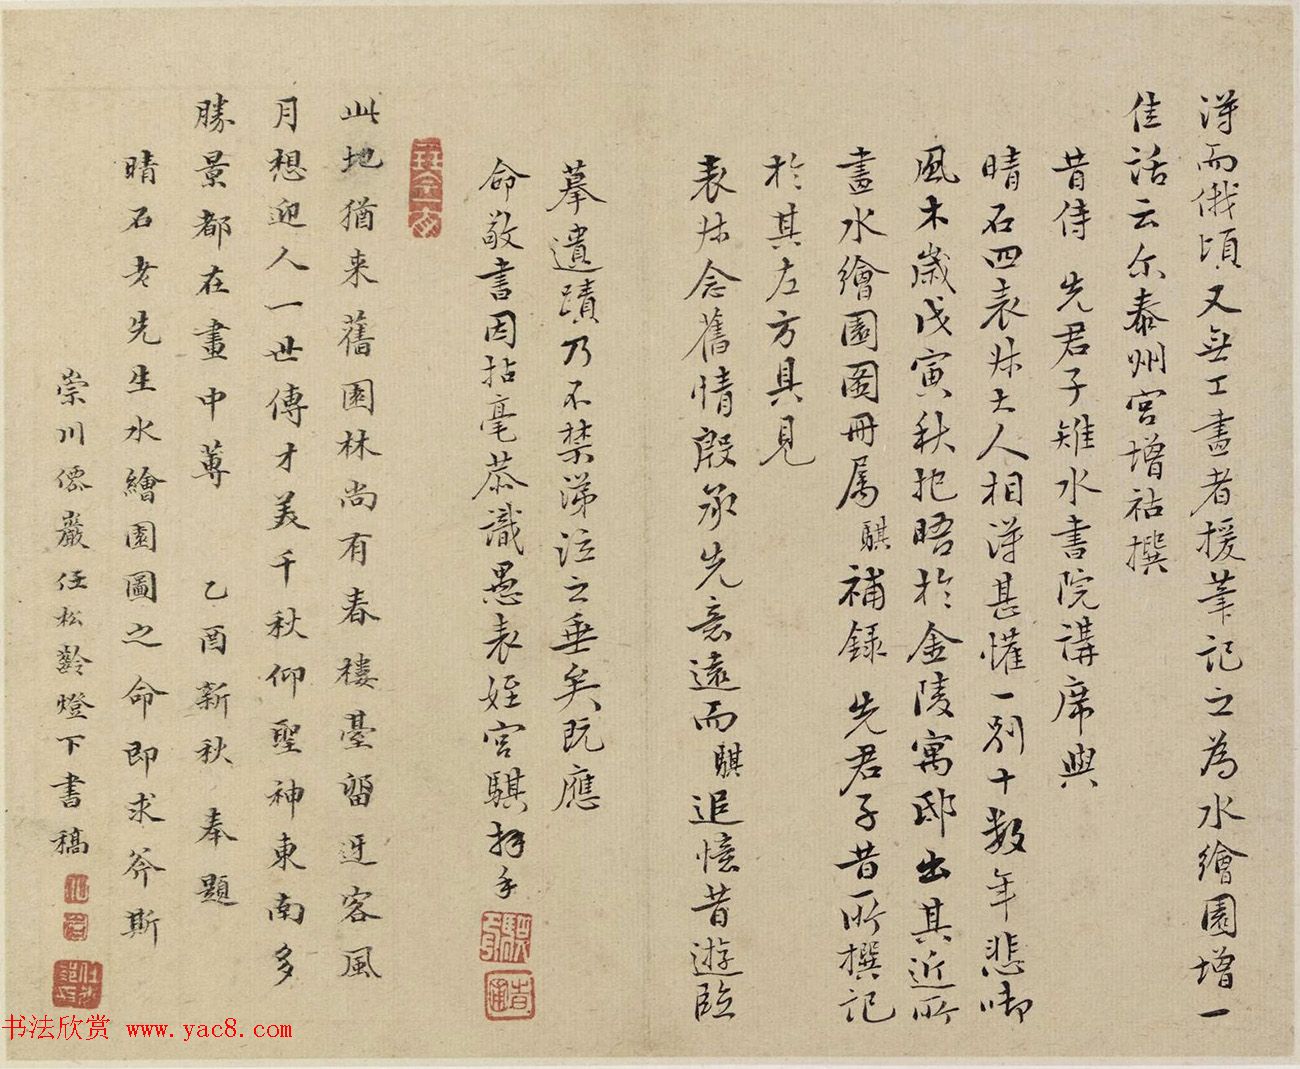 淂而俄頃又無工畫者援筆記之為水繪園增一
佳話云尓泰州宫增祜撰
昔侍先君子雉水書院講席與
晴石四表牀士人相淂甚懽一别十数年悲啣
風木歲戊寅秋把晤於金陵寓邸出其近所
畫水繪園圖冊属騏補録先君子昔所撰記
於其左方具見
表牀念舊情殷承先意遠而騏追憶昔遊臨
摹遺蹟乃不禁涕泣之垂矣既應
命敬書因拈毫恭識愚表姪宫騏拜手
此地猶来舊園林尚有春樓臺留迓客風
月想迎人一世傳才美千秋仰聖神東南多
勝景都在畫中蓴乙酉新秋奉題
晴石老先生水繪園圖之命即求斧斯
崇川儒巖任松齡燈下書稿
书法欣赏 www.yac8.com